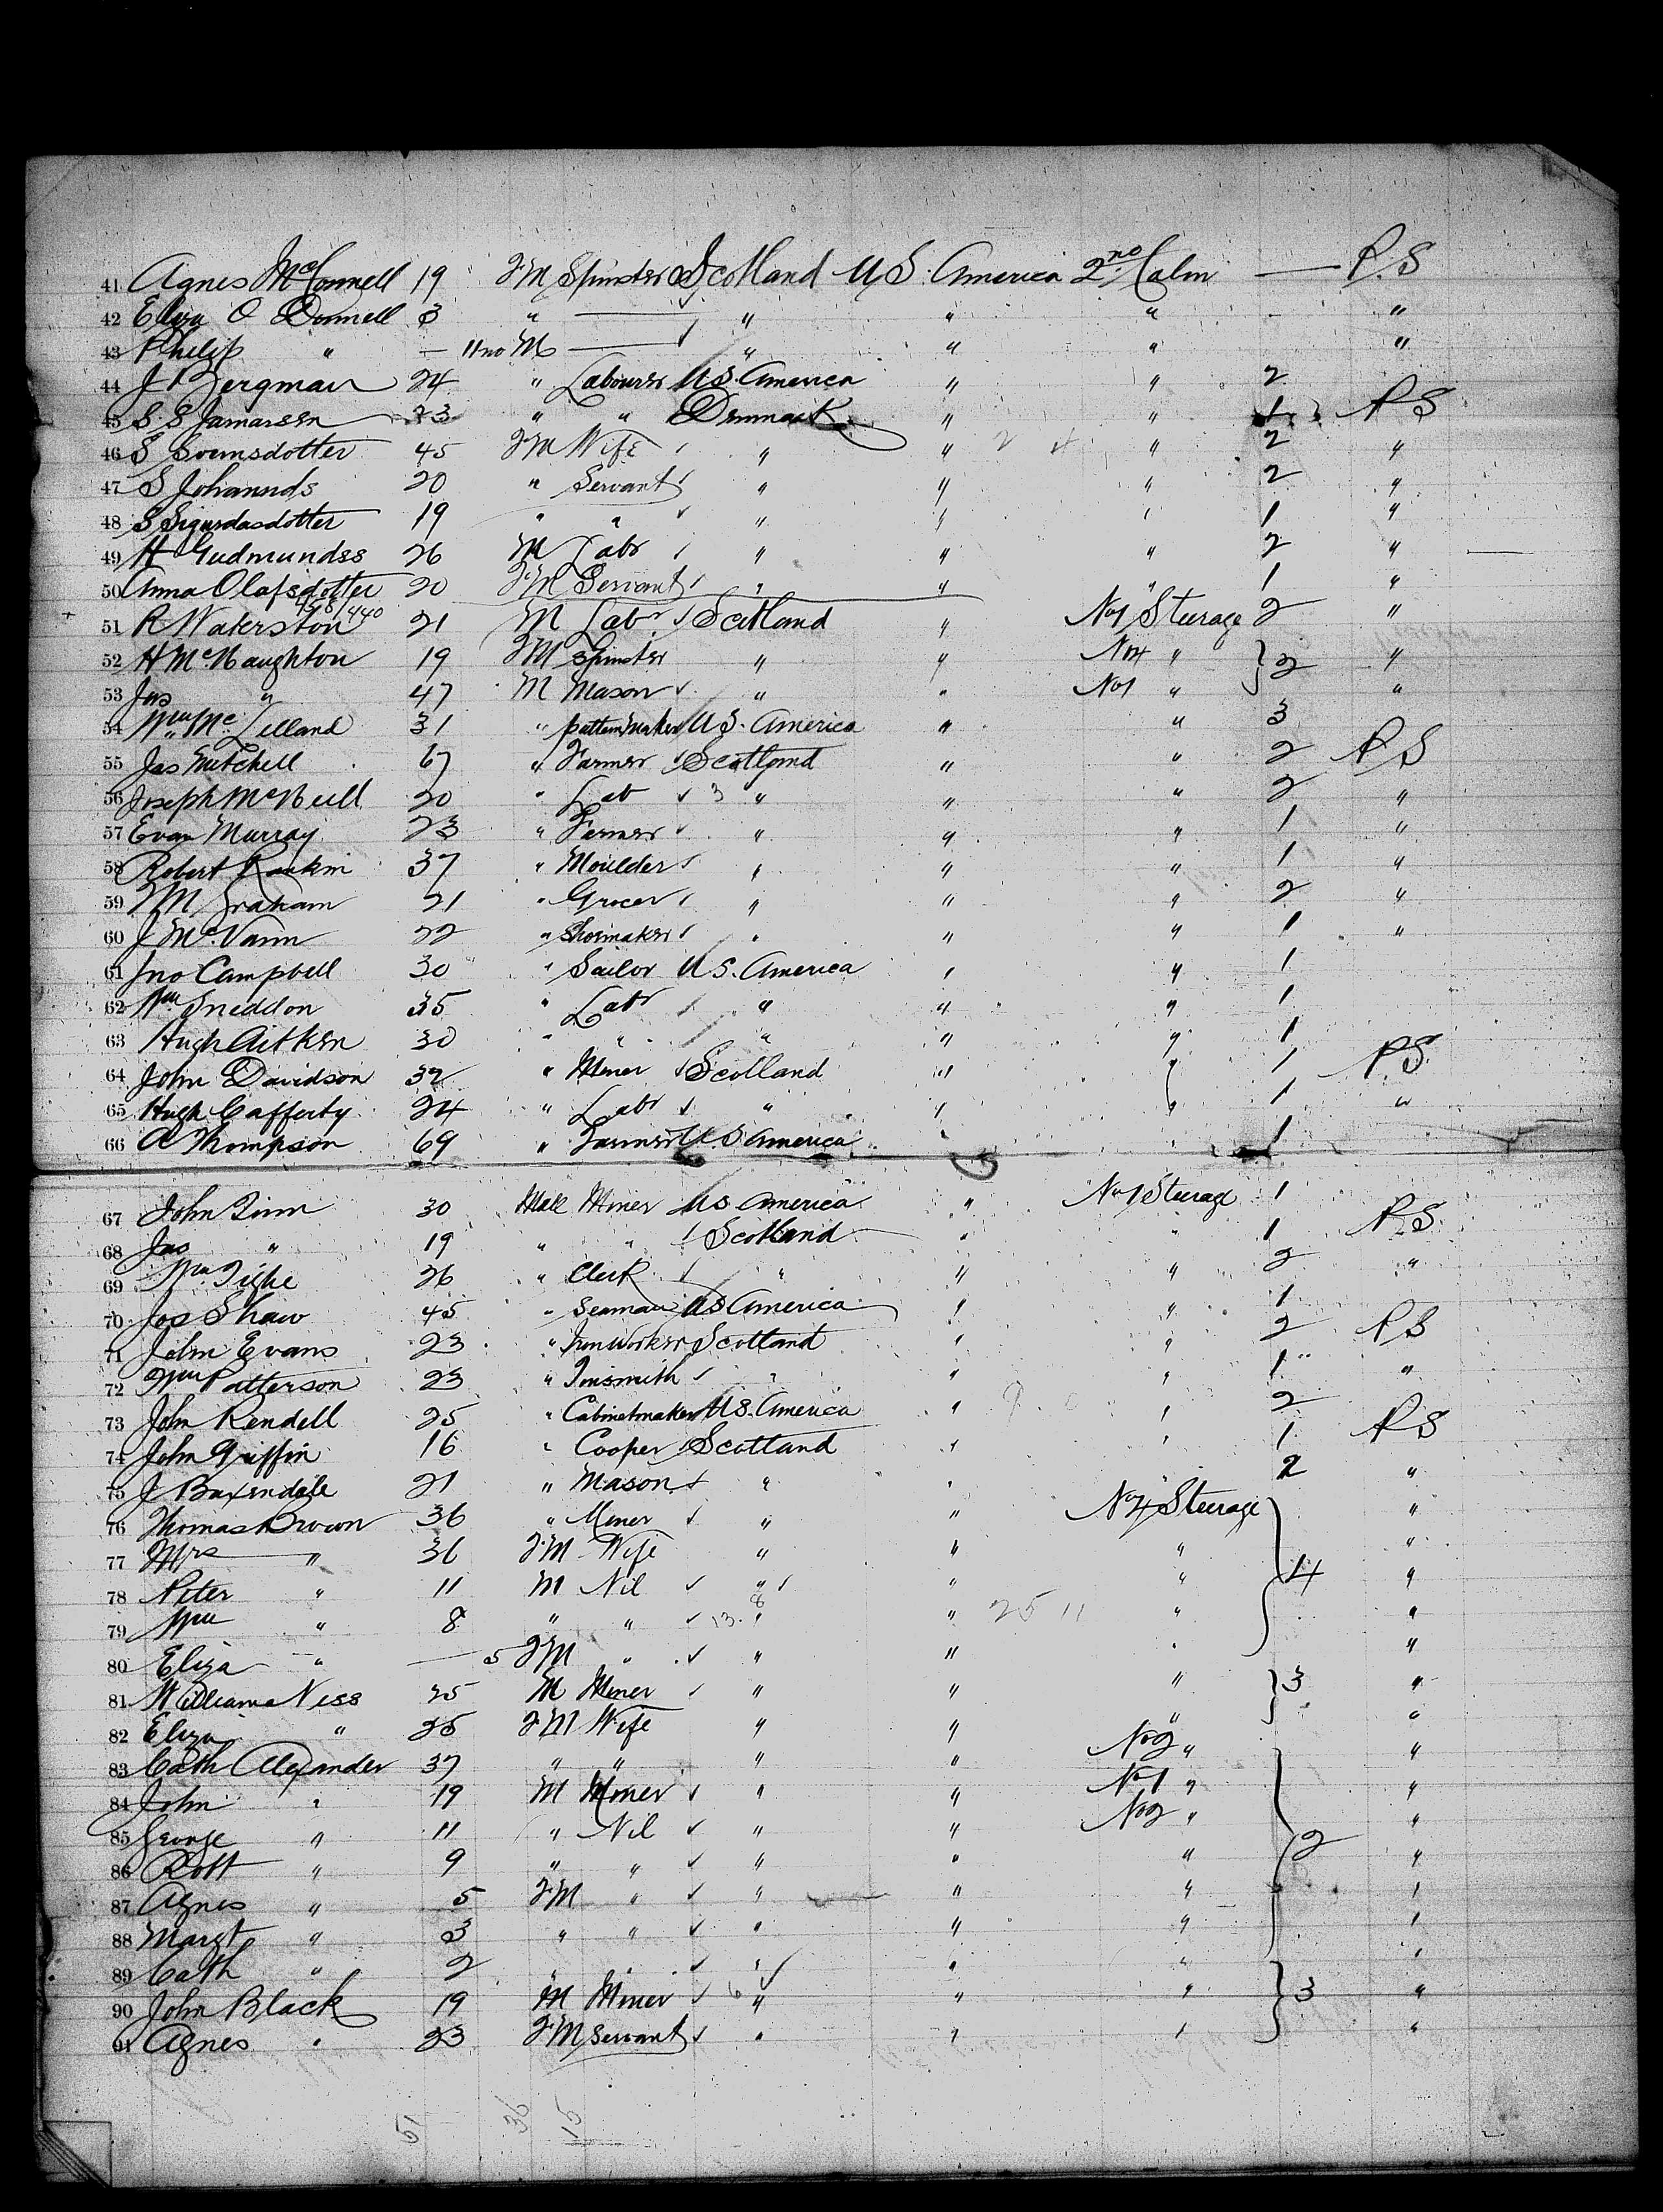 41 Agnes McConnell 19 FM Spinster Scotland U.S. America 2nd Cabn — P.S
42 Eliza O Donnell 3 " — " " " "
43 Philip " — 11 mo M — " " " "
44 J Bergman 24 " Labourer U.S. America " " 2
45 S S 23 " " Denmark " " 1 P S
46 S Svensdotter 45 FM Wife " " " 2 "
47 S Johannds 20 " Servant " " " 2 "
48 S Sigurdasdotter 19 " " " " " 1 "
49 H Gudmundss 26 M Labr " " " 2 "
50 Anna Olafsdotter 20 FM Servant " " " 1 "
51 R Waterston 21 M Labr Scotland " No 1 Steerage 2 "
52 H McNaughton 19 FM Spinster " " No 4 " } 2 "
53 Jas " 47 M Mason " " No 1 " "
54 Wm McLelland 31 " patternmaker U.S. America " " 3
55 Jas Mitchell 67 " Farmer Scotland " " 2 P S
56 Joseph McNeill 20 " Lab 3 " " " 2 "
57 Evan Murray 23 " Farmer " " " 1 "
58 Robert Rankin 37 " Moulder " " " 1 "
59 Graham 21 " Grocer " " " 2 "
60 J McVann 22 " Shoemaker " " " 1 "
61 Jno Campbell 30 " Sailor U.S. America " " 1
62 Wm Sneddon 35 " Labr " " " 1
63 Hugh Aitken 30 " " " " " 1
64 John Davidson 32 " Miner Scotland " " 1 P.S
65 Hugh Cafferty 24 " Labr " " " 1 "
66 A Thompson 69 " Farmer U S America " " 1
67 John 30 Male Miner US America " No 1 Steerage 1
68 Jas " 19 " " Scotland " " 1 P.S.
69 Wm Tighe 26 " Clerk " " " 2 "
70 Jos Shaw 45 " Seaman US America " " 1
71 John Evans 23 " Ironworker Scotland " " 2 P S
72 Wm Patterson 23 " Tinsmith " " " 1 "
73 John Rendell 25 " Cabinetmaker U.S. America " " 2
74 John Griffin 16 " Cooper Scotland " " 1 P S
75 J Baxendale 21 " Mason " " " 2 "
76 Thomas Brown 36 " Miner " " No 4 Steerage "
77 Mrs " 36 FM Wife " " " "
78 Peter " 11 M Nil " " " } 4 "
79 Wm " 8 " " 13. 8 " " 25 11 " "
80 Eliza " — 5 FM " " " " "
81 William Ness 25 M Miner " " " } 3 "
82 Eliza " 25 FM Wife " " " "
83 Cath Alexander 37 " " " " No 2 " "
84 John " 19 M Miner " " No 1 " "
85 George " 11 " Nil " " No 2 " "
86 Robt " 9 " " " " " } 2 "
87 Agnes " 5 FM " " " " "
88 Margt " 3 " " " " " "
89 Cath " 2 " " " " " "
90 John Black 19 M Miner 6 " " " } 3 "
91 Agnes " 23 FM Servant " " " "
51 36 15